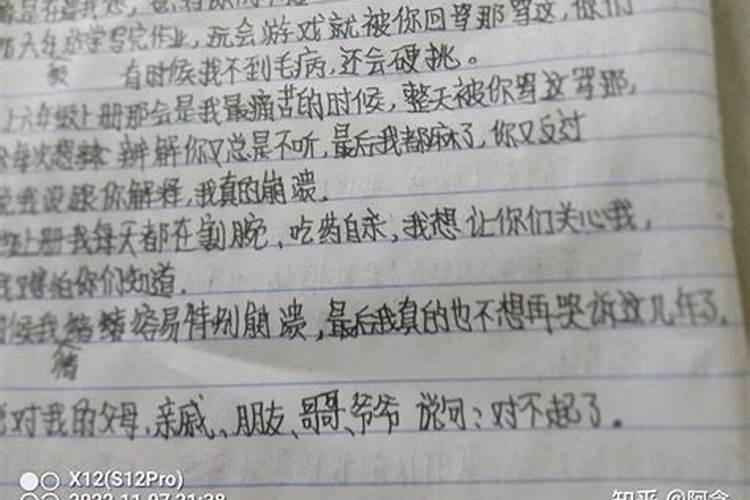 六年放学写完作业,玩会游戏就被你回骂那骂这,你们
候
有时候找不到毛病,还会硬挑。
上六年级上册那会是我最痛苦的时候,整天被你骂这骂那,
每次想 辨解你又总是不听,最后我都麻了,你又反过
说我没跟你解释,我真的崩溃.
上册我每天都在割腕、吃药自杀,我想让你们关心我,
我怕你们知道.
候我 绪容易特别崩溃,最后我真的也不想再哭诉这几年了.
情
对我的父母、亲戚、朋友、哥哥、爷爷 说句:对不起了。
X12(S12Pro)
2022.11.07 21:38
知乎 @阿念